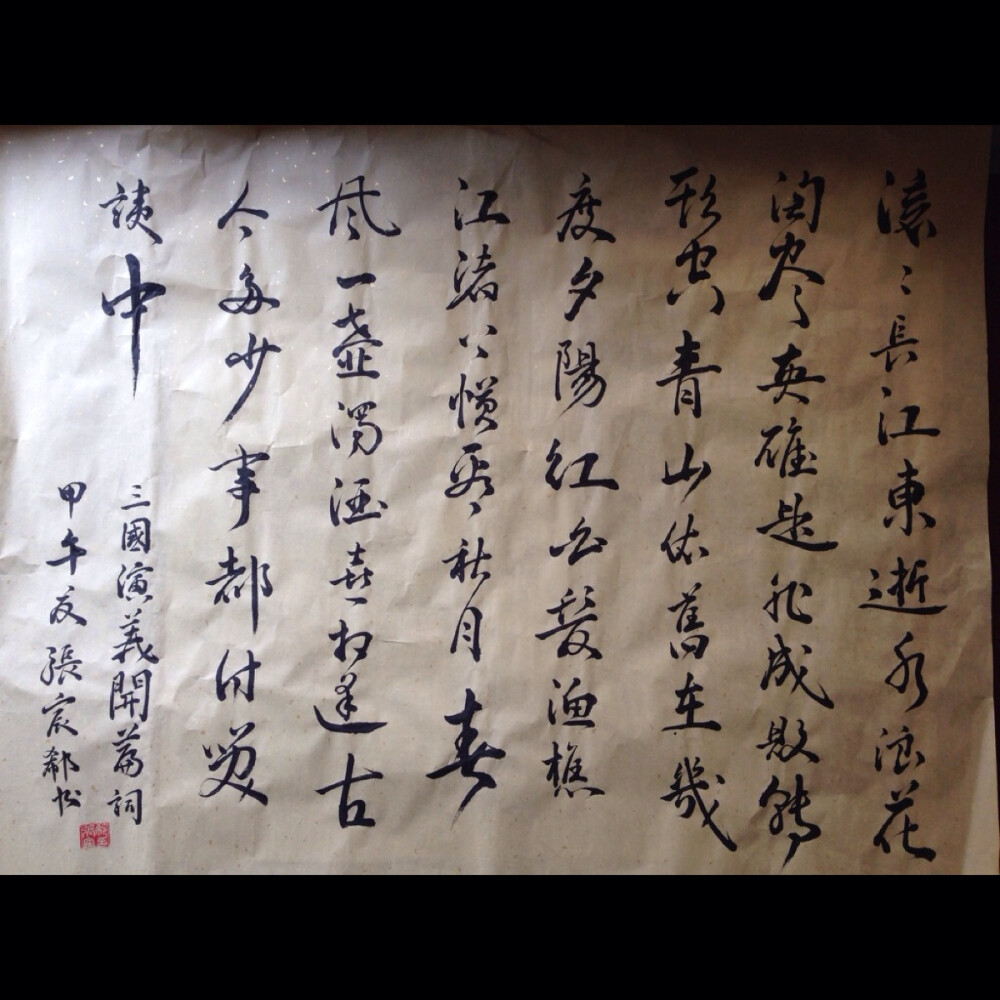 滚〻長江東逝水浪花
淘尽英雄是非成敗轉
頭空青山依舊在幾
度夕陽紅白髮漁樵
江渚上慣看秋月春
風一壶濁酒喜相逢古
今多少事都付笑
談中
三國演義開篇詞
甲午夏張宸